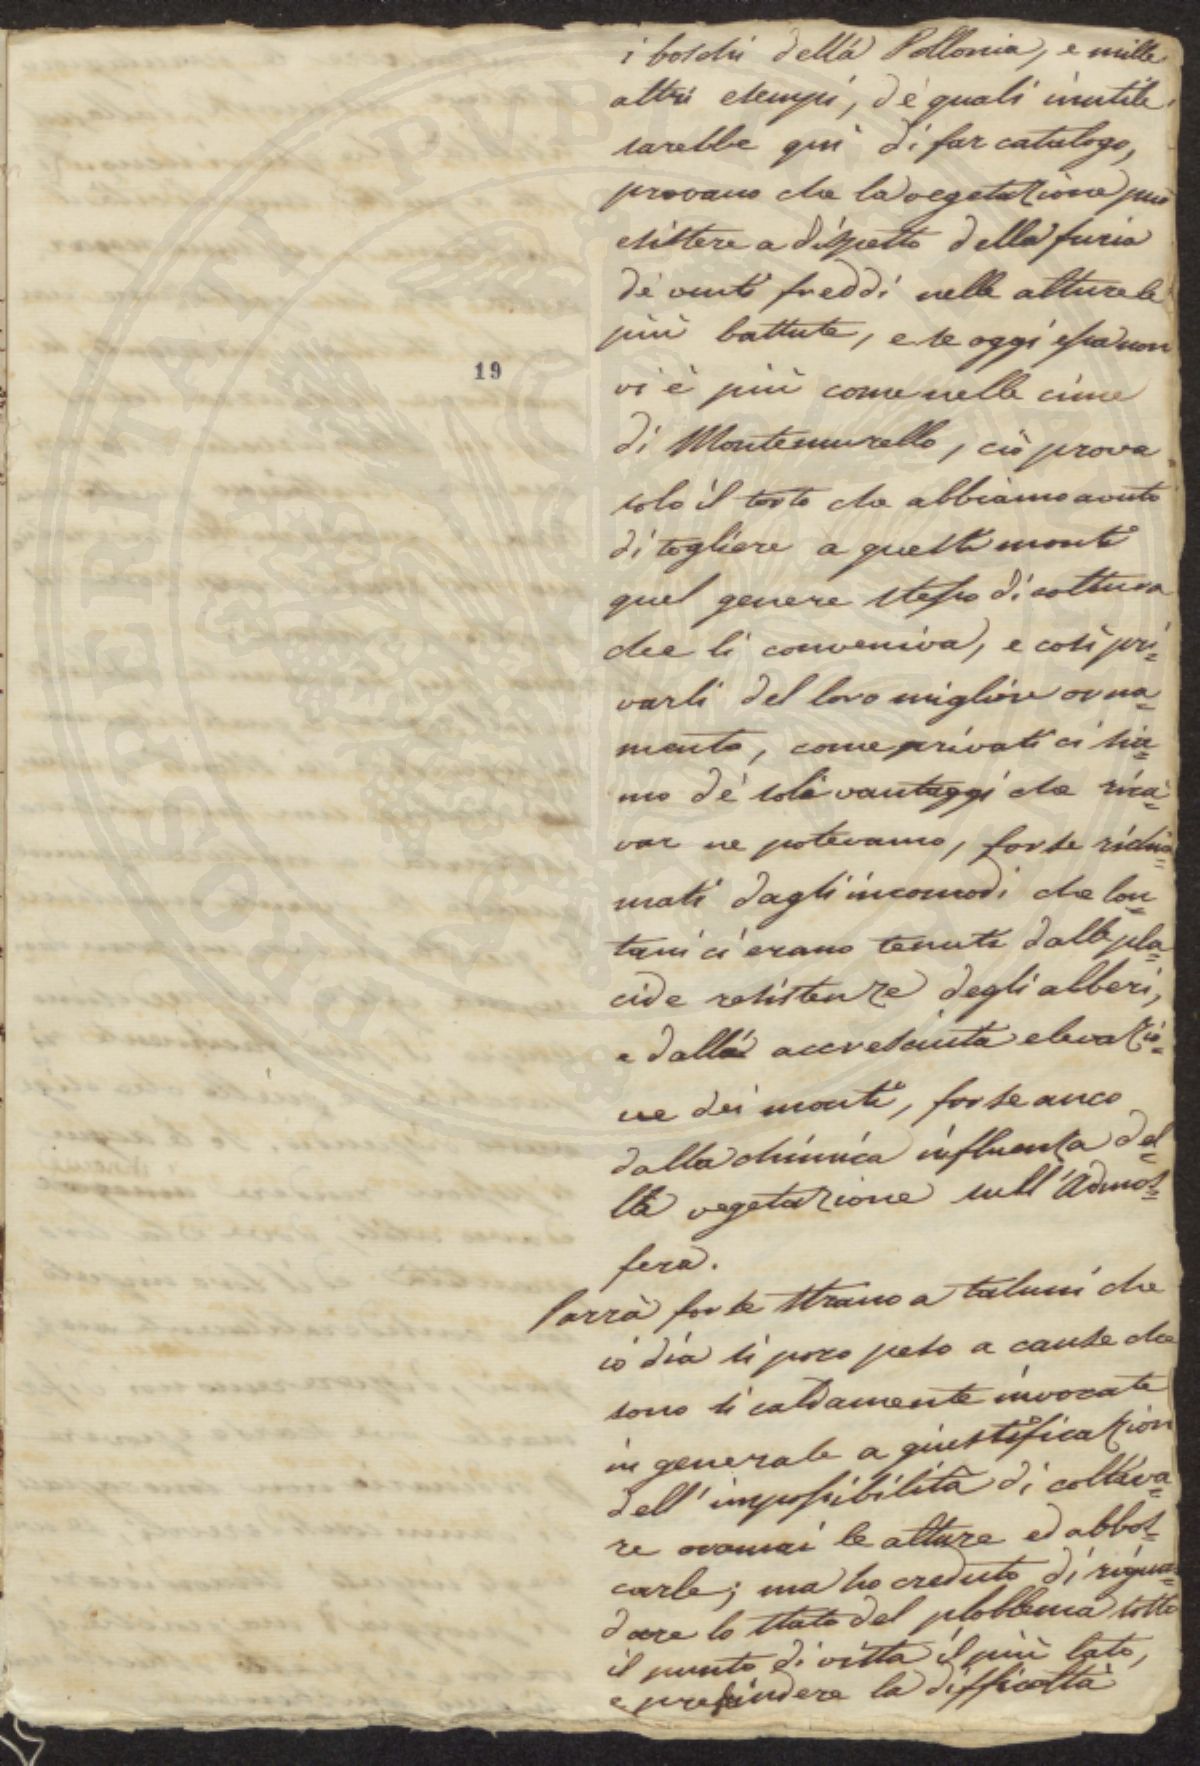 i boschi della Pollonia, e mille
altri esempi, de' quali inutile
sarebbe quì di far catalogo,
provano che la vegetazione può
esistere a dispetto della furia
de' venti freddi nelle alture le
più battute, e se oggi essa non
19
vi è più come nelle cime
di Montemurello, ciò prova
solo il torto che abbiamo avuto
di togliere a questi monti
quel genere stesso di coltura
che li conveniva, e così pri=
varli del loro migliore orna=
mento, come privati ci sia=
mo de' soli vantaggi che rica=
var ne potevamo, forse richia=
mati dagli incomodi che lon=
tani ci erano tenuti dalle pla=
cide resistenze degli alberi,
e dalla accresciuta elevazio=
ne dei monti, forse anco
dalla chimica influenza del=
la vegetazione sull'Admos=
fera.
Parrà forse strano a taluni che
io dia sì poco peso a cause che
sono sì caldamente invocate
in generale a giustificazion
dell'impossibilità di coltiva=
re oramai le alture ed abbos=
carle; ma ho creduto di riguar
dare lo stato del ploblema sotto
il punto di vista il più lato,
e prescindere la difficoltà